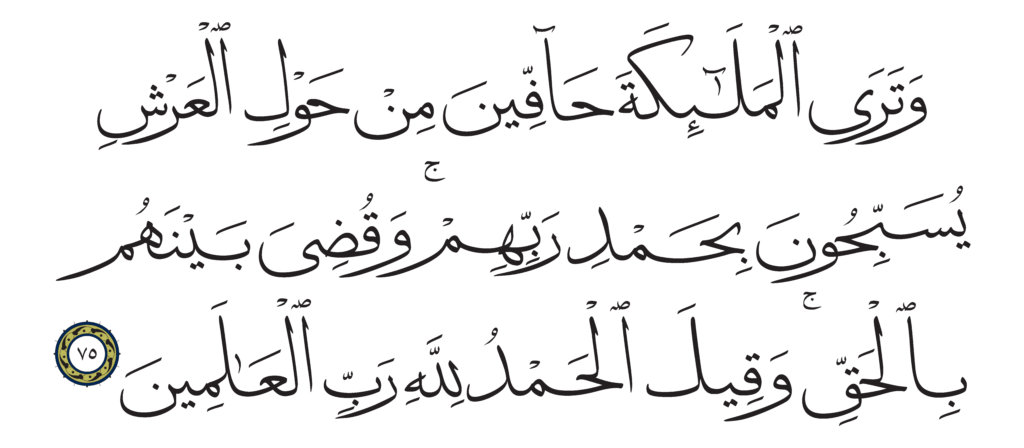 وَتَرَى ٱلْمَلَـٰٓئِكَةَ حَآفِّينَ مِنْ حَوْلِ ٱلْعَرْشِ
يُسَبِّحُونَ بِحَمْدِ رَبِّهِمْ ۚ وَقُضِىَ بَيْنَهُم
بِٱلْحَقِّ ۚ وَقِيلَ ٱلْحَمْدُ لِلَّهِ رَبِّ ٱلْعَـٰلَمِينَ ٧٥